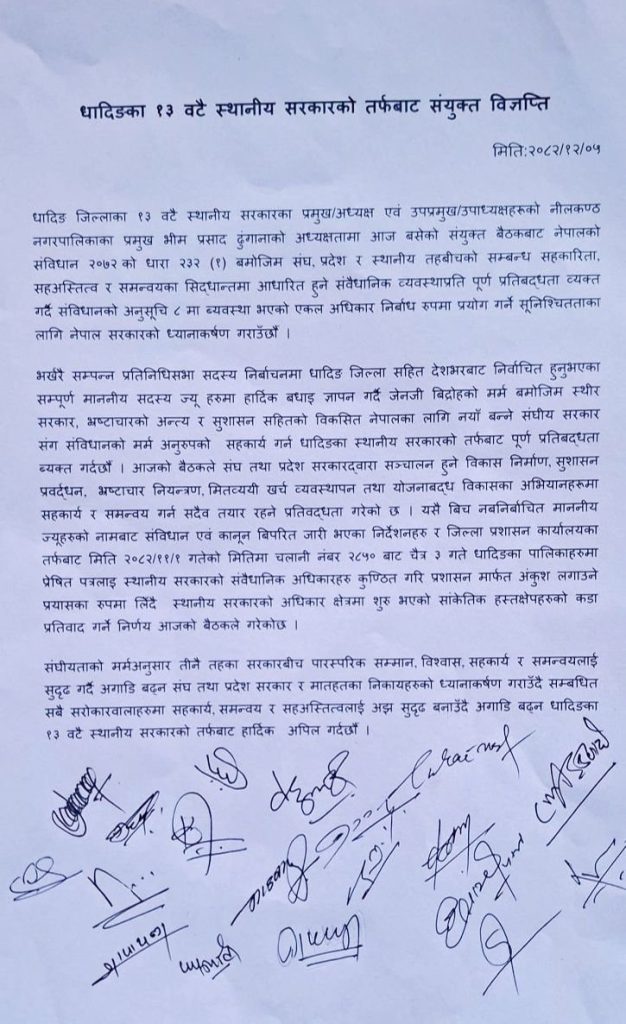 धादिङका १३ वटै स्थानीय सरकारको तर्फबाट संयुक्त विज्ञप्ति
मिति:२०८२/१२/०५
धादिङ जिल्लाका १३ वटै स्थानीय सरकारका प्रमुख/अध्यक्ष एवं उपप्रमुख/उपाध्यक्षहरूको नीलकण्ठ
नगरपालिकाका प्रमुख भीम प्रसाद ढुंगानाको अध्यक्षतामा आज बसेको संयुक्त बैठकबाट नेपालको
संविधान २०७२ को धारा २३२ (१) बमोजिम संघ, प्रदेश र स्थानीय तहबीचको सम्बन्ध सहकारिता,
सहअस्तित्व र समन्वयका सिद्धान्तमा आधारित हुने संवैधानिक व्यवस्थाप्रति पूर्ण प्रतिबद्धता व्यक्त
गर्दै संविधानको अनुसूचि ८ मा ब्यवस्था भएको एकल अधिकार निर्बाध रुपमा प्रयोग गर्ने सूनिश्चितताका
लागि नेपाल सरकारको ध्यानाकर्षण गराउँछौं ।
भर्खरै सम्पन्न प्रतिनिधिसभा सदस्य निर्बाचनमा धादिङ जिल्ला सहित देशभरबाट निर्वाचित हुनुभएका
सम्पूर्ण माननीय सदस्य ज्यू हरुमा हार्दिक बधाइ ज्ञापन गर्दै जेनजी बिद्रोहको मर्म बमोजिम स्थीर
सरकार, भ्रष्टाचारको अन्त्य र सुशासन सहितको विकसित नेपालका लागि नयाँ बन्ने संघीय सरकार
संग संविधानको मर्म अनुरुपको सहकार्य गर्न धादिङका स्थानीय सरकारको तर्फबाट पूर्ण प्रतिबद्धता
ब्यक्त गर्दछौं । आजको बैठकले संघ तथा प्रदेश सरकारद्वारा सञ्चालन हुने विकास निर्माण, सुशासन
प्रवर्द्धन, भ्रष्टाचार नियन्त्रण, मितव्ययी खर्च ब्यवस्थापन तथा योजनाबध्द विकासका अभियानहरूमा
सहकार्य र समन्वय गर्न सदैव तयार रहने प्रतिवद्धता गरेको छ । यसै बिच नबनिर्बाचित माननीय
ज्यूहरुको नामबाट संविधान एवं कानून बिपरित जारी भएका निर्देशनहरु र जिल्ला प्रशासन कार्यालयका
तर्फबाट मिति २०८२/११/१ गतेको मितिमा चलानी नंबर २८५० बाट चैत्र ३ गते धादिङका पालिकाहरुमा
प्रेषित पत्रलाइ स्थानीय सरकारको संवैधानिक अधिकारहरु कुण्ठित गरि प्रशासन मार्फत अंकुश लगाउने
प्रयासका रुपमा लिँदै स्थानीय सरकारको अधिकार क्षेत्रमा शुरु भएको सांकेतिक हस्तक्षेपहरुको कडा
प्रतिवाद गर्ने निर्णय आजको बैठकले गरेकोछ ।
संघीयताको मर्मअनुसार तीनै तहका सरकारबीच पारस्परिक सम्मान, विश्वास, सहकार्य र समन्वयलाई
सुदृढ गर्दै अगाडि बढ्न संघ तथा प्रदेश सरकार र मातहतका निकायहरुको ध्यानाकर्षण गराउँदै सम्बधित
सबै सरोकारवालाहरुमा सहकार्य, समन्वय र सहअस्तित्वलाई अझ सुदृढ बनाउँदै अगाडि बढ्न धादिङका
१३ वटै स्थानीय सरकारको तर्फबाट हार्दिक अपिल गर्दछौं ।